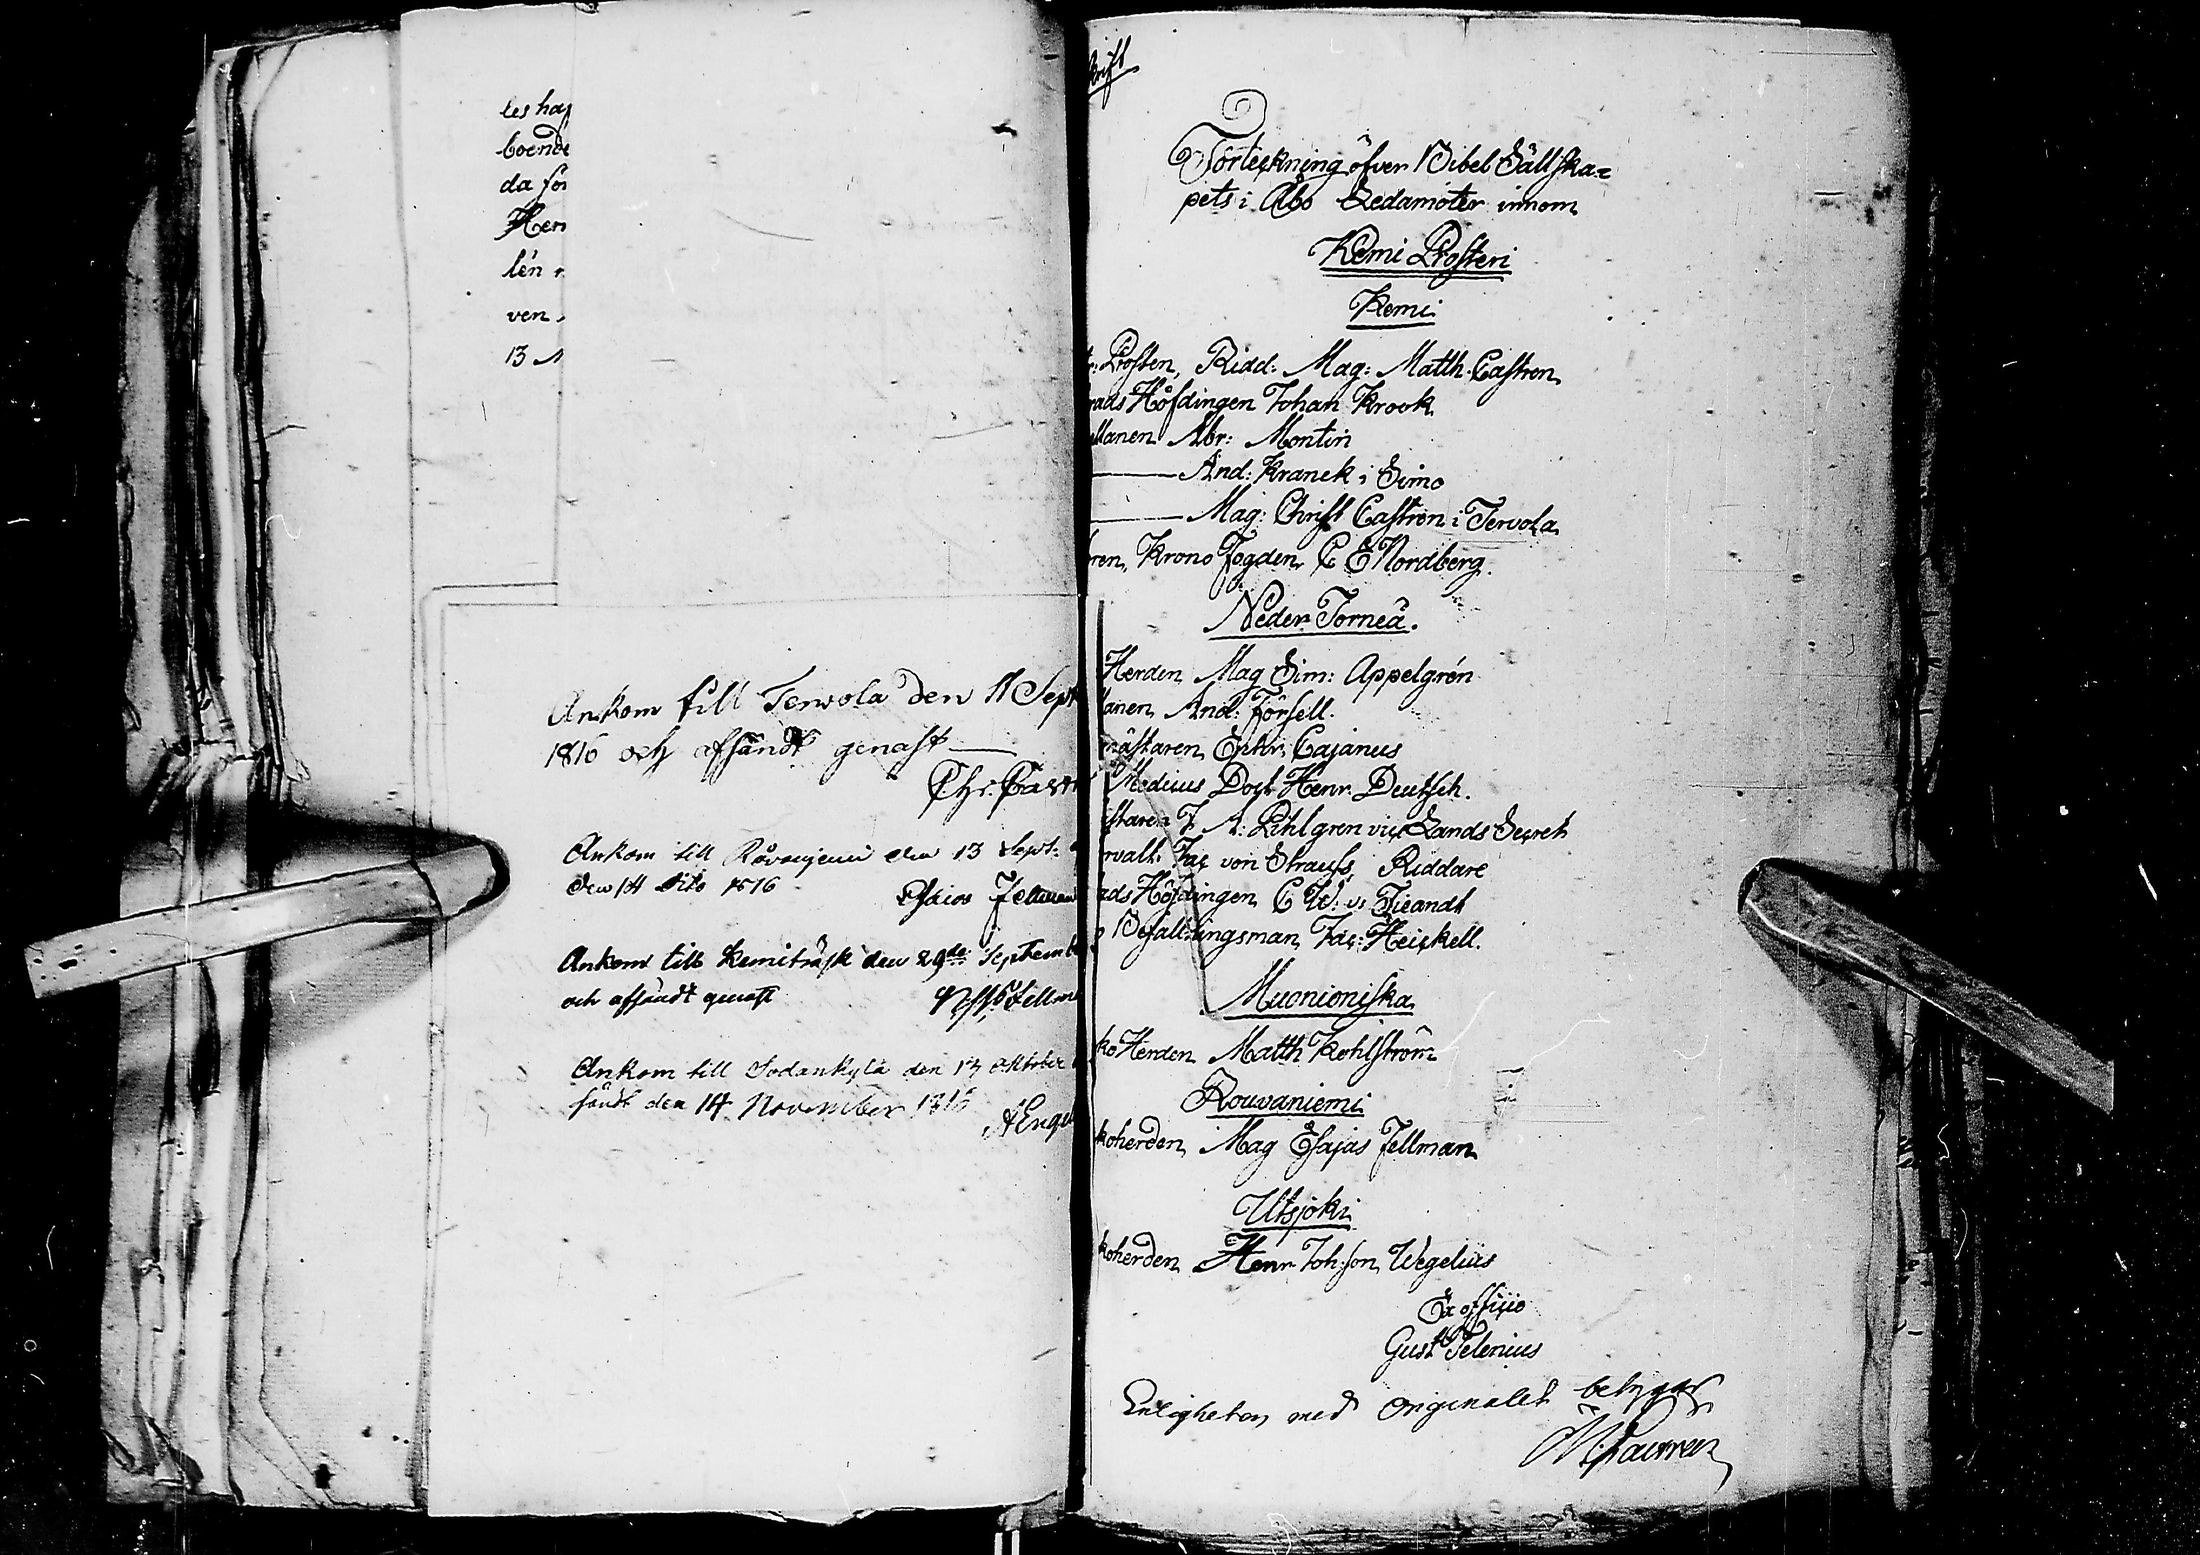 les hap
boende
da för
Her
lén
ven
13
Ankom till Tervola den 11 Sept
1816 och afsändt genast
Chr. Castr
Ankom till Råvaniemi den 13 Sept:
den 14 dito 1816
Esaias Fellman
Ankom till Kemiträsk den 29de Septemb
och afsändt genast
Fellm
Ankom till Sodankylä den 17 October
sändt den 14 November 1816
krift
Förteckning öfver Bibel Sällska=
pets i Åbo Ledamöter innom
Kemi Prosteri
Kemi
Prosten, Ridd: Mag: Matth. Castren
rads Höfdingen Johan Krook
llanen Abr: Montin
And: Kranck i Simo
Mag: Christ Castren i Tervola
ren, Krono Fogden C E Nordberg.
Neder Torneå.
Herden Mag Sim: Appelgrén
lanen And: Forsell.
mästaren Cajanus
Medicus Doct Henr. Deutsch.
staren J. A: Pihlgren vice Lands Secret
rvalt: Jac von Strauss, Riddare
ads Höfdingen C W: v: Fieandt
Befallningsman Jac: Heickell.
Muonioniska
ko Herden Matth Kohlström
Rouvaniemi
koherden, Mag Esajas Fellman
Utsjoki
koherden Henr Joh:son Wegelius
Ex officio
Gust
Enligheten med Originalet betygar
M. Castren